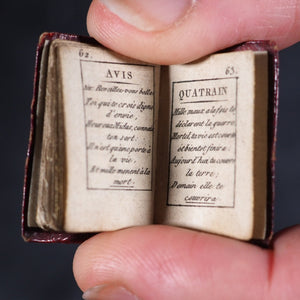 62.
AVIS
toi: Reveillez-vous belle
Toi que je crois digne
d'envie,
Heureux Midas, connais
ton sort:
Il n'est qu'une porte à
la vie,
Et mille mènent à la
mort.
63.
QUATRAIN
Mille maux à la fois te
déclarent la guerre
Mortel, ta vie est courte
et bientôt finira:
Aujourd'hui tu couvre
la terre;
Demain elle te
couvrira.